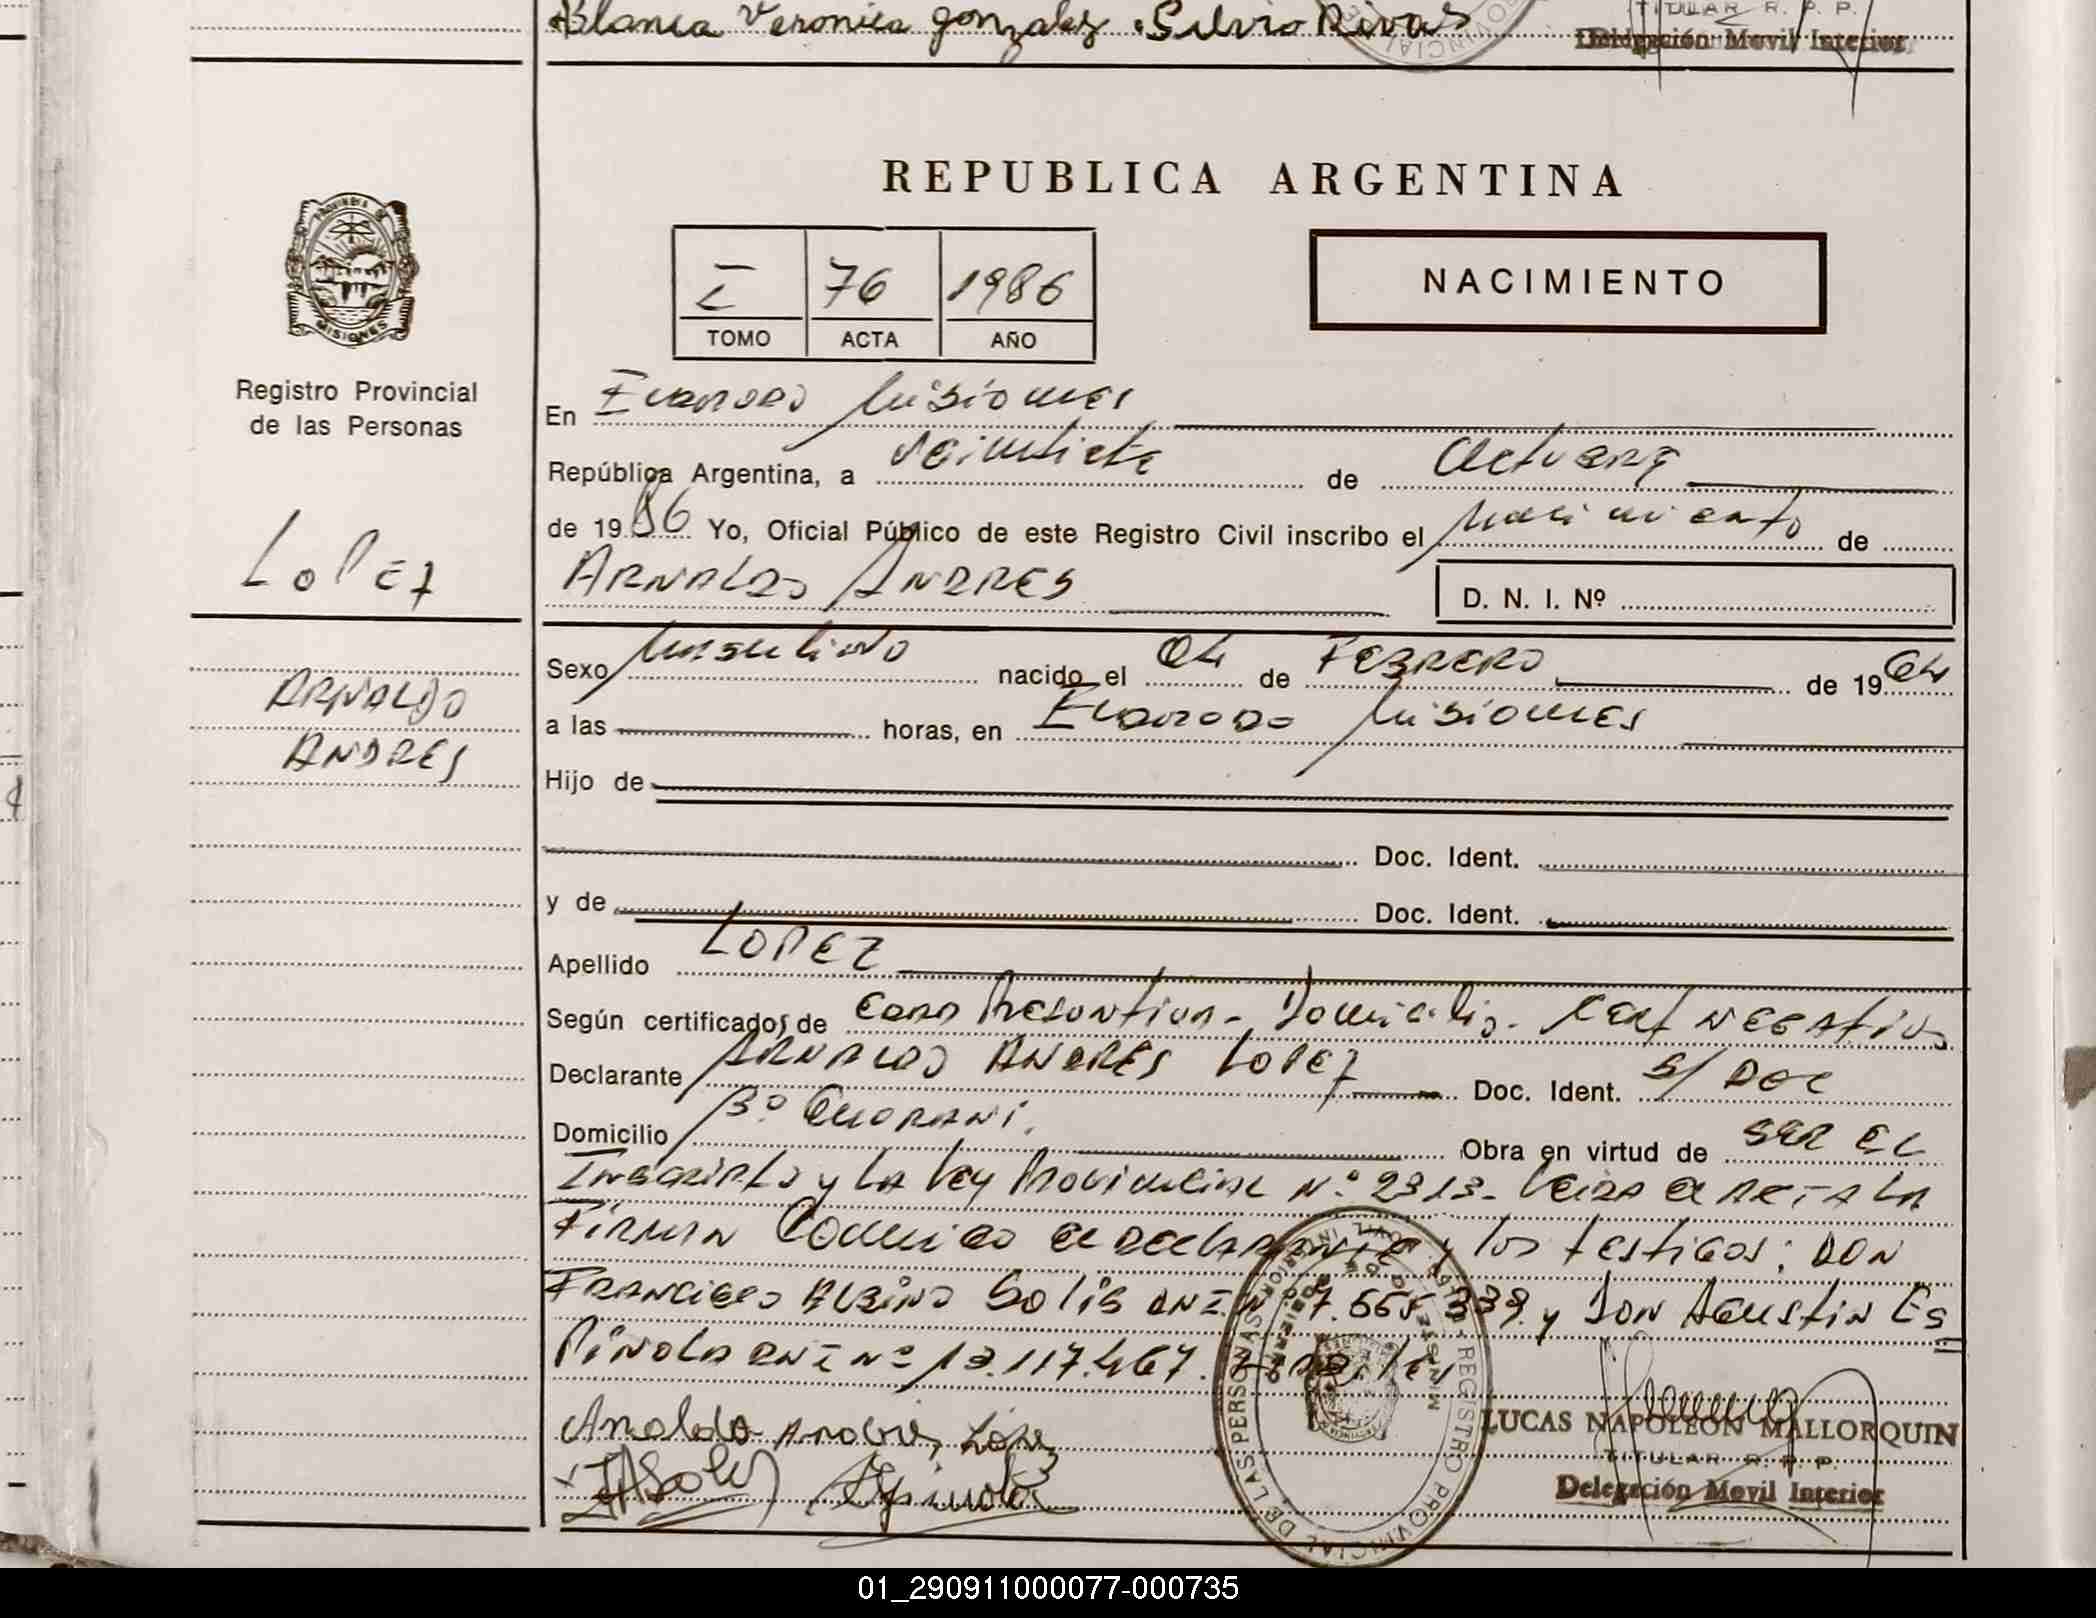 Blanca Veronica gonzalez . Silvio Rivas
TITULAR R. P. P.
Delegación Movil Interior
REPUBLICA ARGENTINA
PROVINCIA DE
MISIONES
I 76 1986
TOMO ACTA AÑO
NACIMIENTO
Registro Provincial
de las Personas
LoPEz
ARNALDO
ANDRES
En Eldorado Misiones
República Argentina, a veintisiete de Octubre
de 1986 Yo, Oficial Público de este Registro Civil inscribo el Nacimiento de
ARNALDO ANDRES D. N. I. Nº
Sexo Masculino nacido el 04 de FEBRERO de 1964
a las horas, en Eldorado Misiones
Hijo de
Doc. Ident.
y de Doc. Ident.
Apellido LOPEZ
Según certificados de Edad Presuntiva - Domicilio. Cert NEGAtivo
Declarante ARNALDO ANDRES LOPEZ Doc. Ident. S/ DOC
Domicilio Bº Guarani. Obra en virtud de SER EL
Inscripto y LA Ley Provincial Nº 2313- Leida el ACTA LA
FIRMAN Conmigo el declarante y los testigos: DON
FRANCISCO ALBINO SOLIS DNI Nº 7.665.339 y DON AGUSTIN ES
PINOLA DNI Nº 13.117.467.
Arnaldo Andres Lopez
LUCAS NAPOLEON MALLORQUIN
TITULAR R. P. P.
Delegación Movil Interior
REGISTRO PROVINCIAL DE LAS PERSONAS
01_290911000077-000735